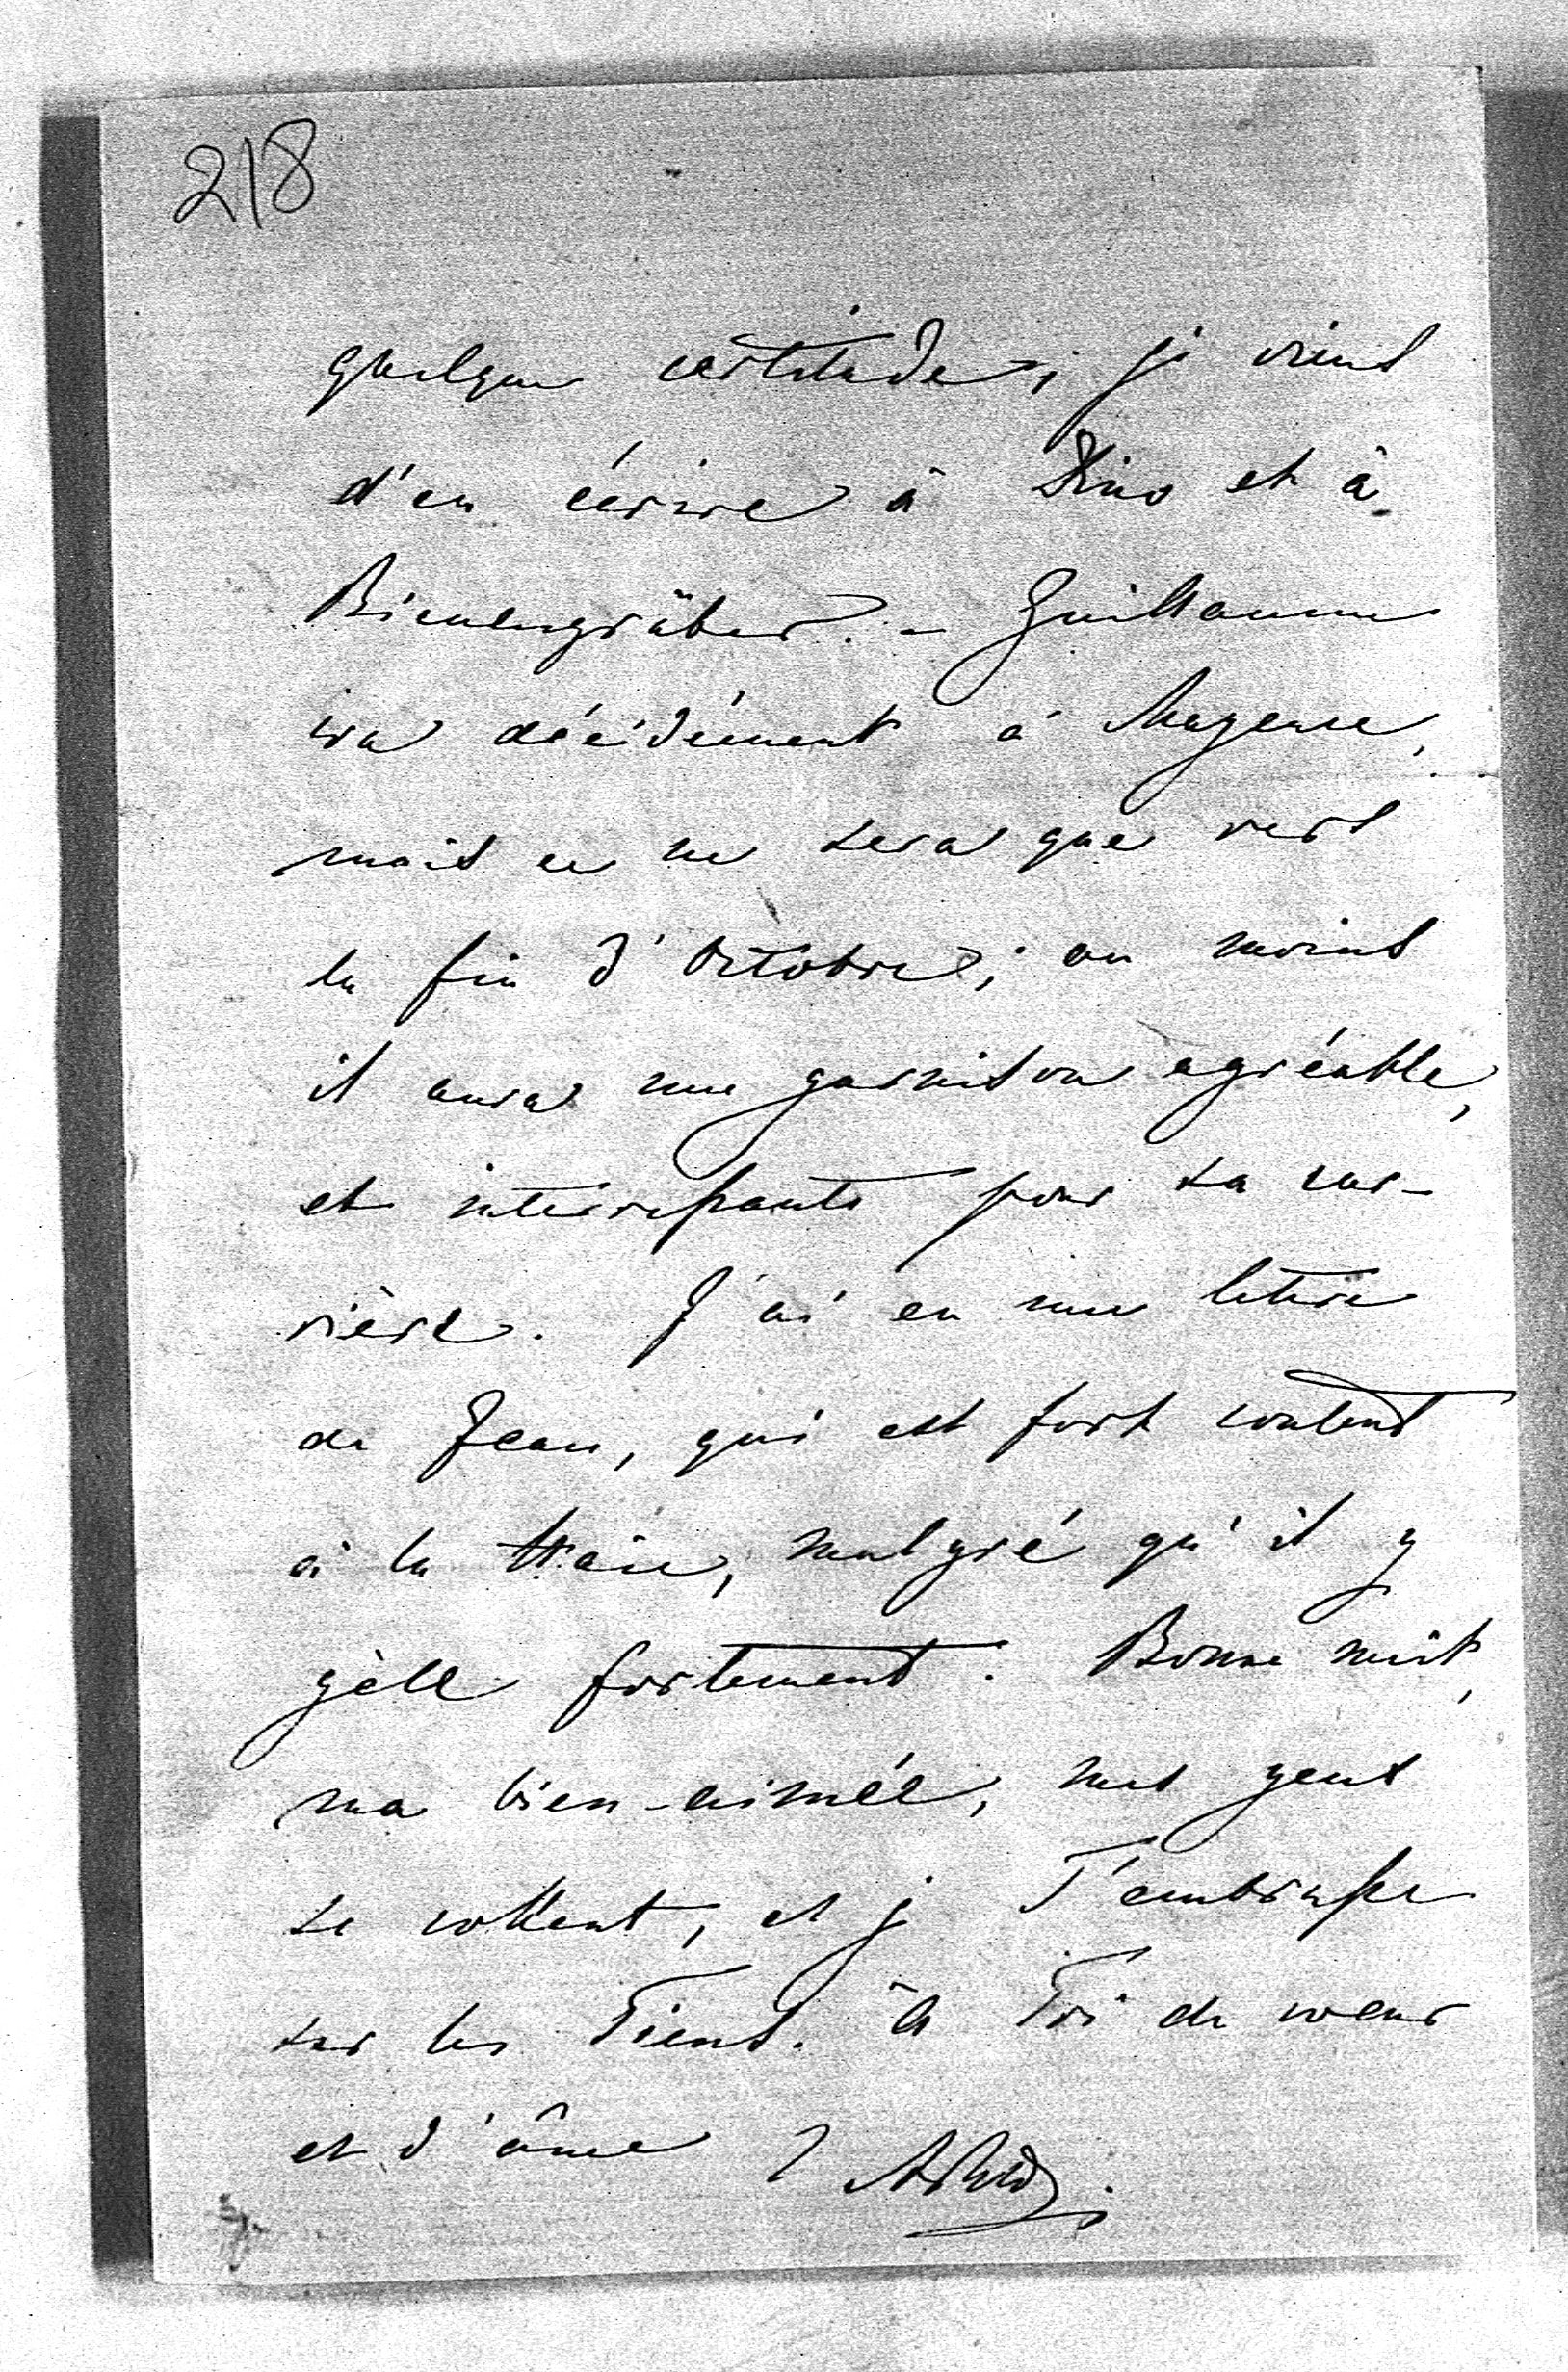 218
quelque certitude; je viens
d'en écrire à Dino et à
Bienengräber. - Guillaume
ira décidément à Mayence,
mais ce ne sera que vers
la fin d'Octobre; au moins
il aura une garnison agréable,
et interessante pour sa car-
rière. J'ai eu une lettre
de Jean, qui est fort content
à la Haie, malgré qu'il y
gèle fortement. Bonne nuit,
ma bien-aimée, mes yeux
se collent, et j T'embrasse
sur les Tiens. à Toi de coeur
et d'âme